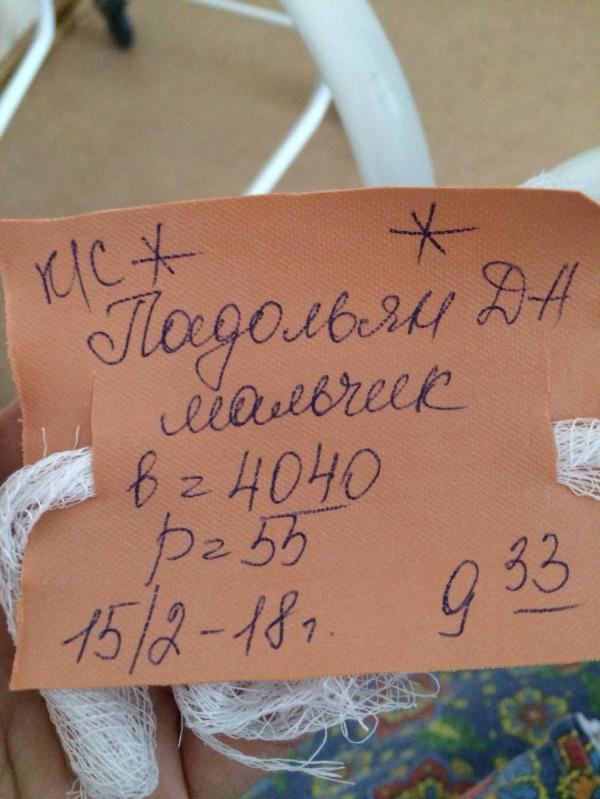 КС * *
Падольян Д-А
мальчик
в = 4040
р = 55
15/2 - 18г. 9 33